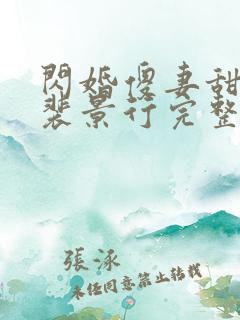 閃婚傻妻甜
裴景行完整
張泳
未经同意禁止转载